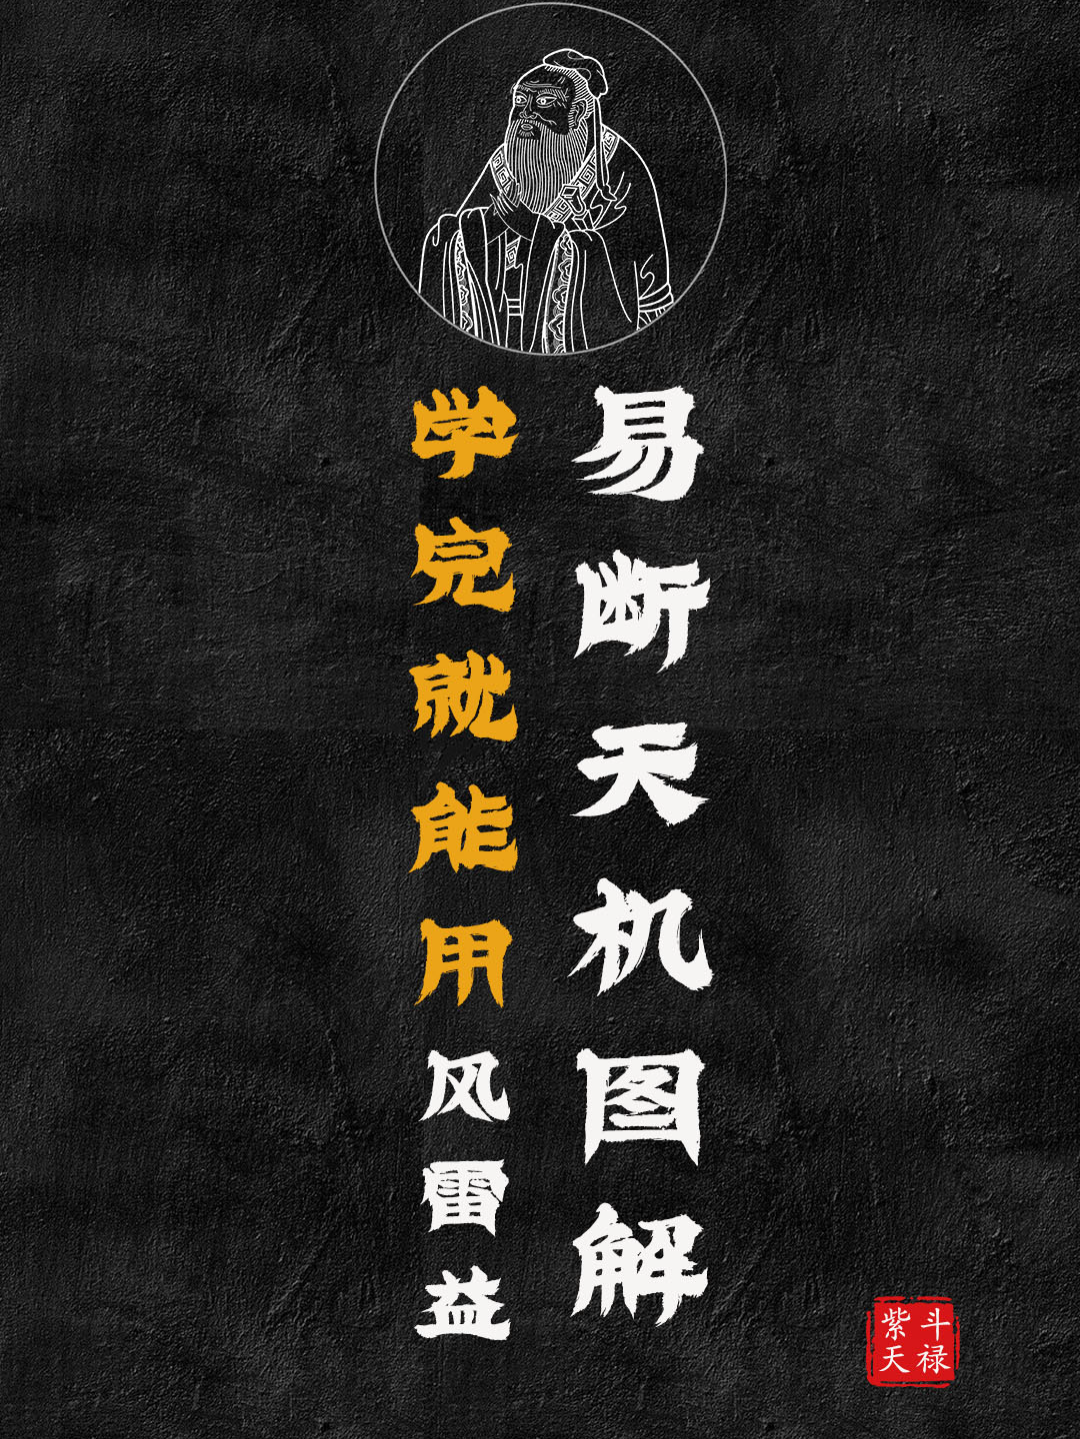 易断天机图解
学完就能用风雷益
紫斗
天禄